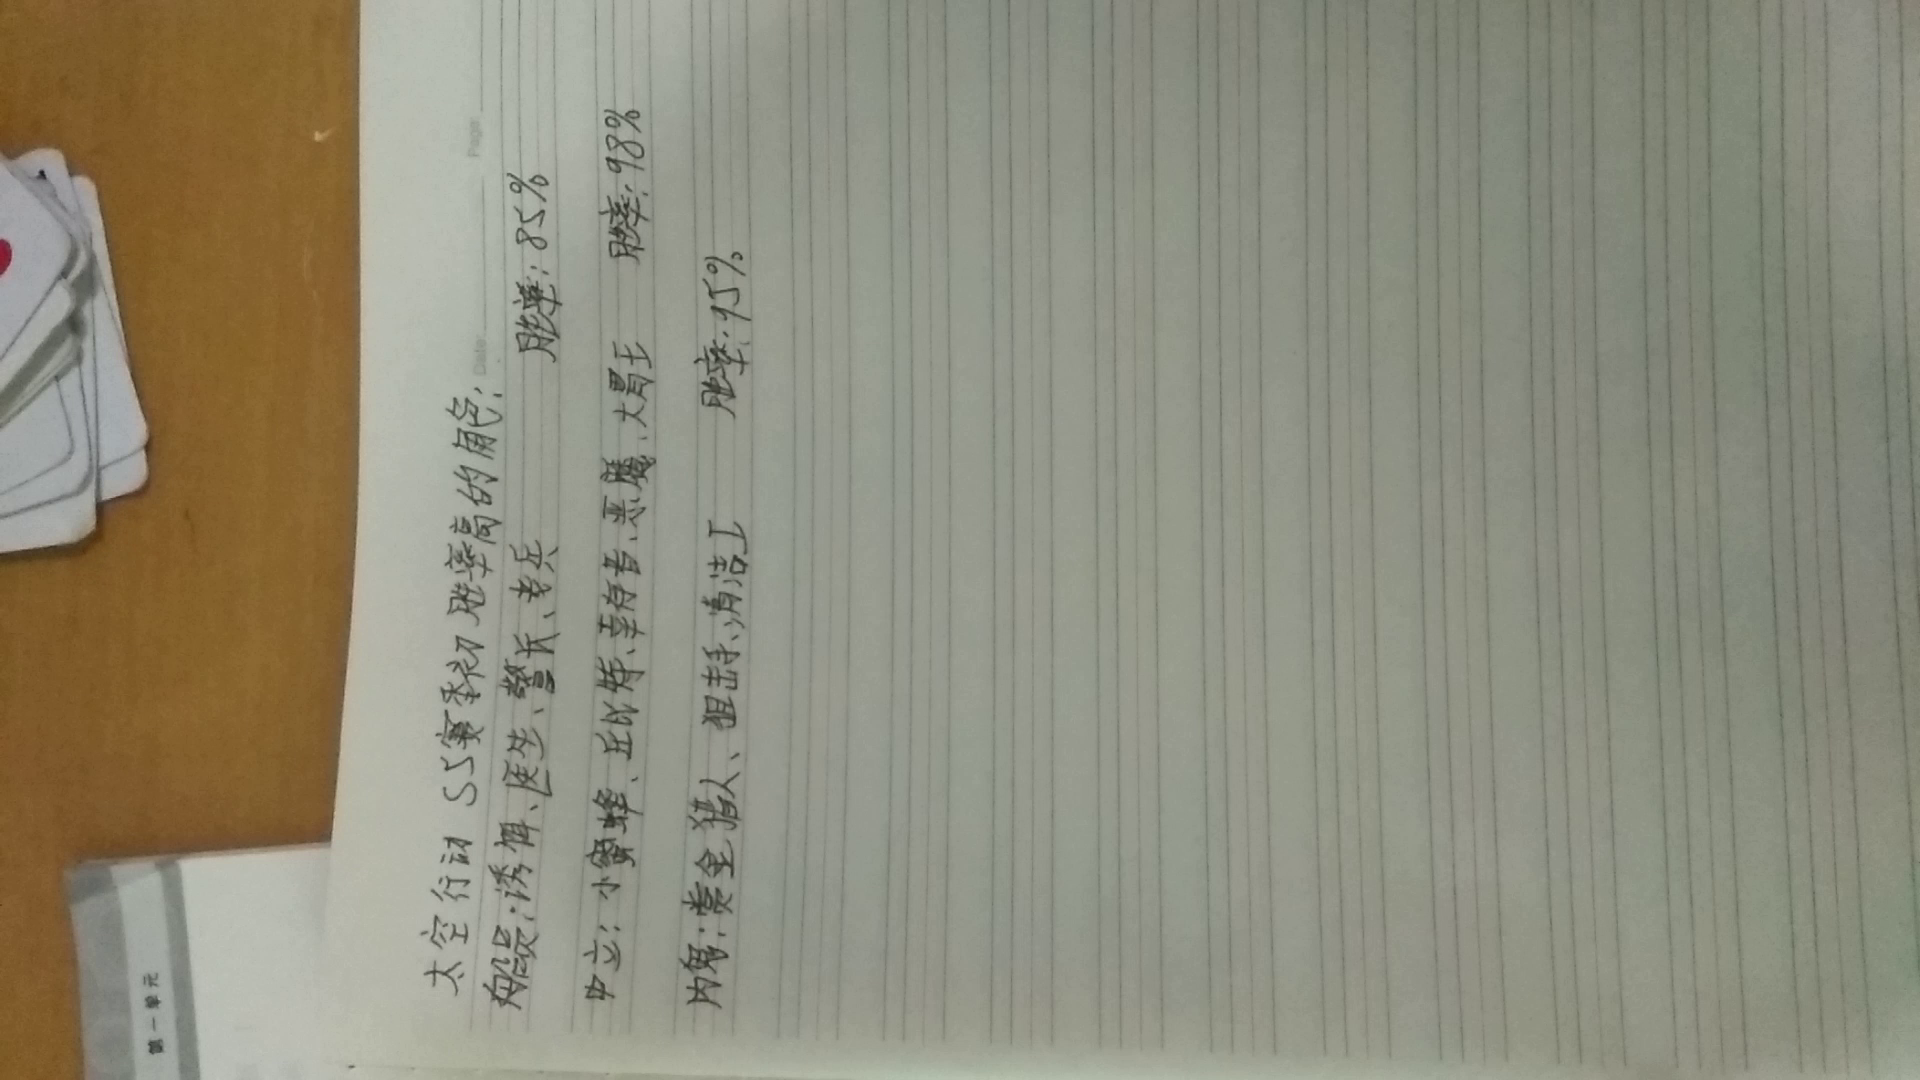 太空行动 S5赛季初胜率高的角色:
船员:诱饵、医生、警长、老兵 胜率:85%
中立:小蜜蜂、丘比特、幸存者、恶魔、大胃王 胜率:98%
内鬼:赏金猎人、狙击手、清洁工 胜率:95%
Date: Page:
第一单元